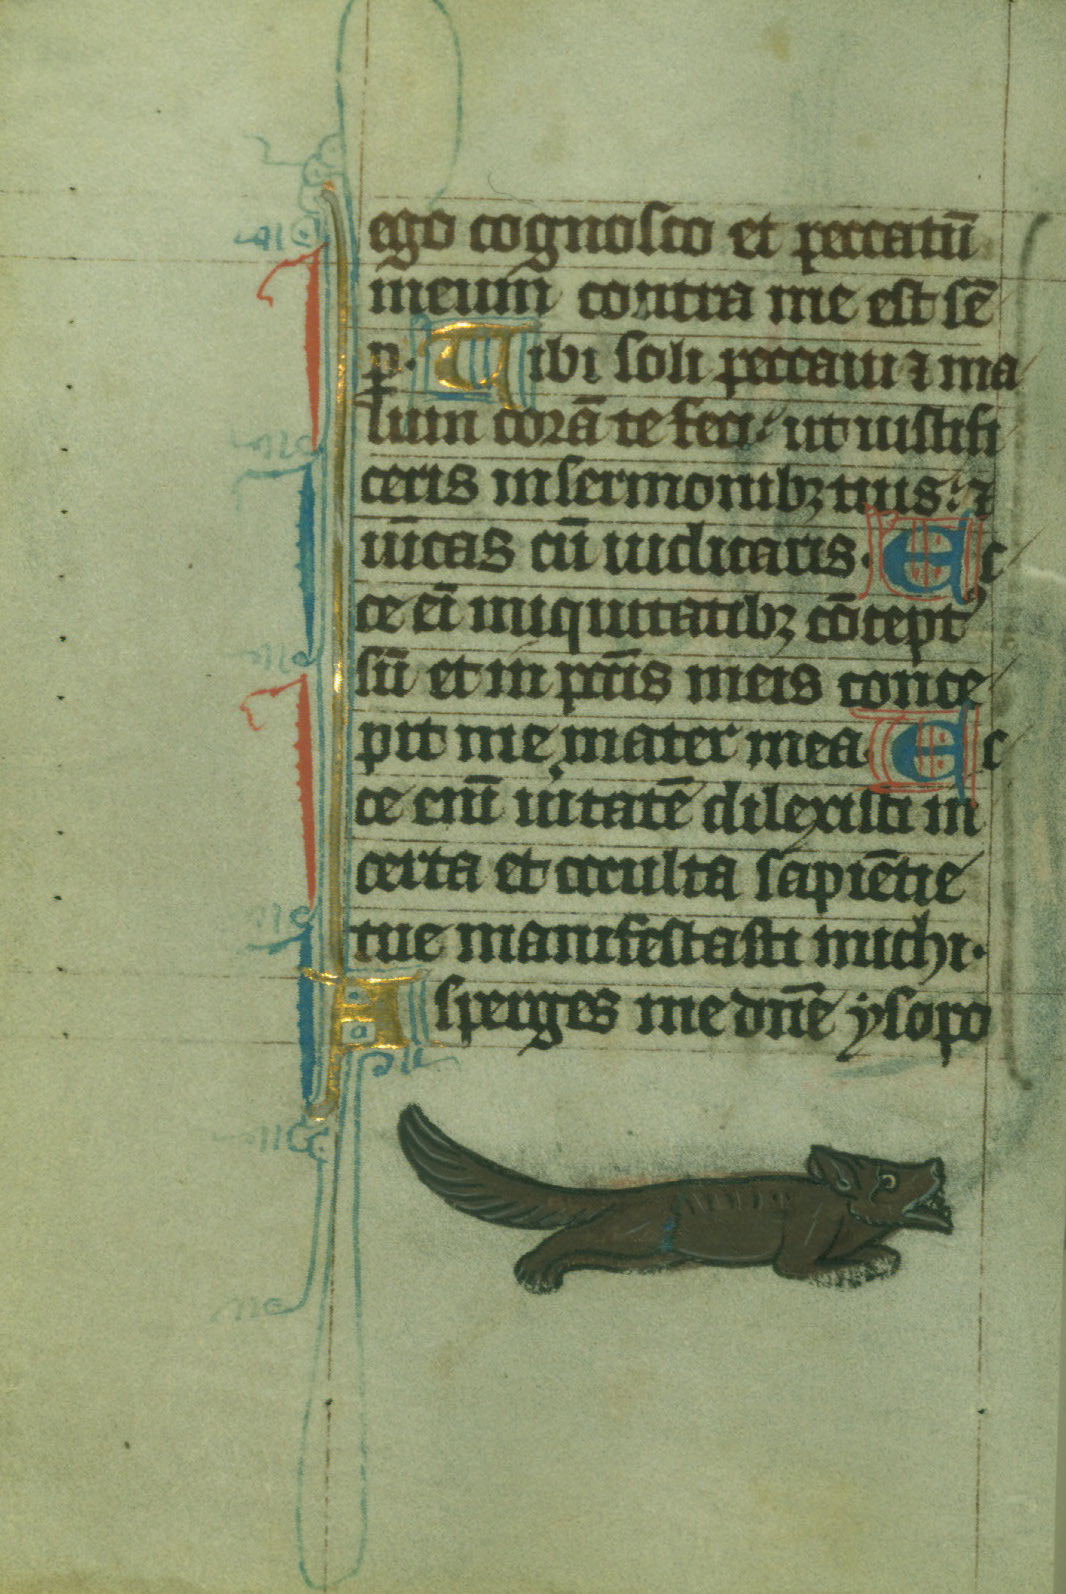 ego cognosco et peccatū
meum contra me est sē
p. Tibi soli peccaui ⁊ ma
lum corā te feci: ut iustifi
ceris in sermonibꝫ tuis: ⁊
uīcas cū iudicaris. Ec
ce eī iniquitatibꝫ cōceptꝰ
sū et in pccīs meis conce
pit me mater mea. Ec
ce enī uītatē dilexisti in
certa et occulta sapiētie
tue manifestasti michi.
Asperges me dn̄e ẏsopo